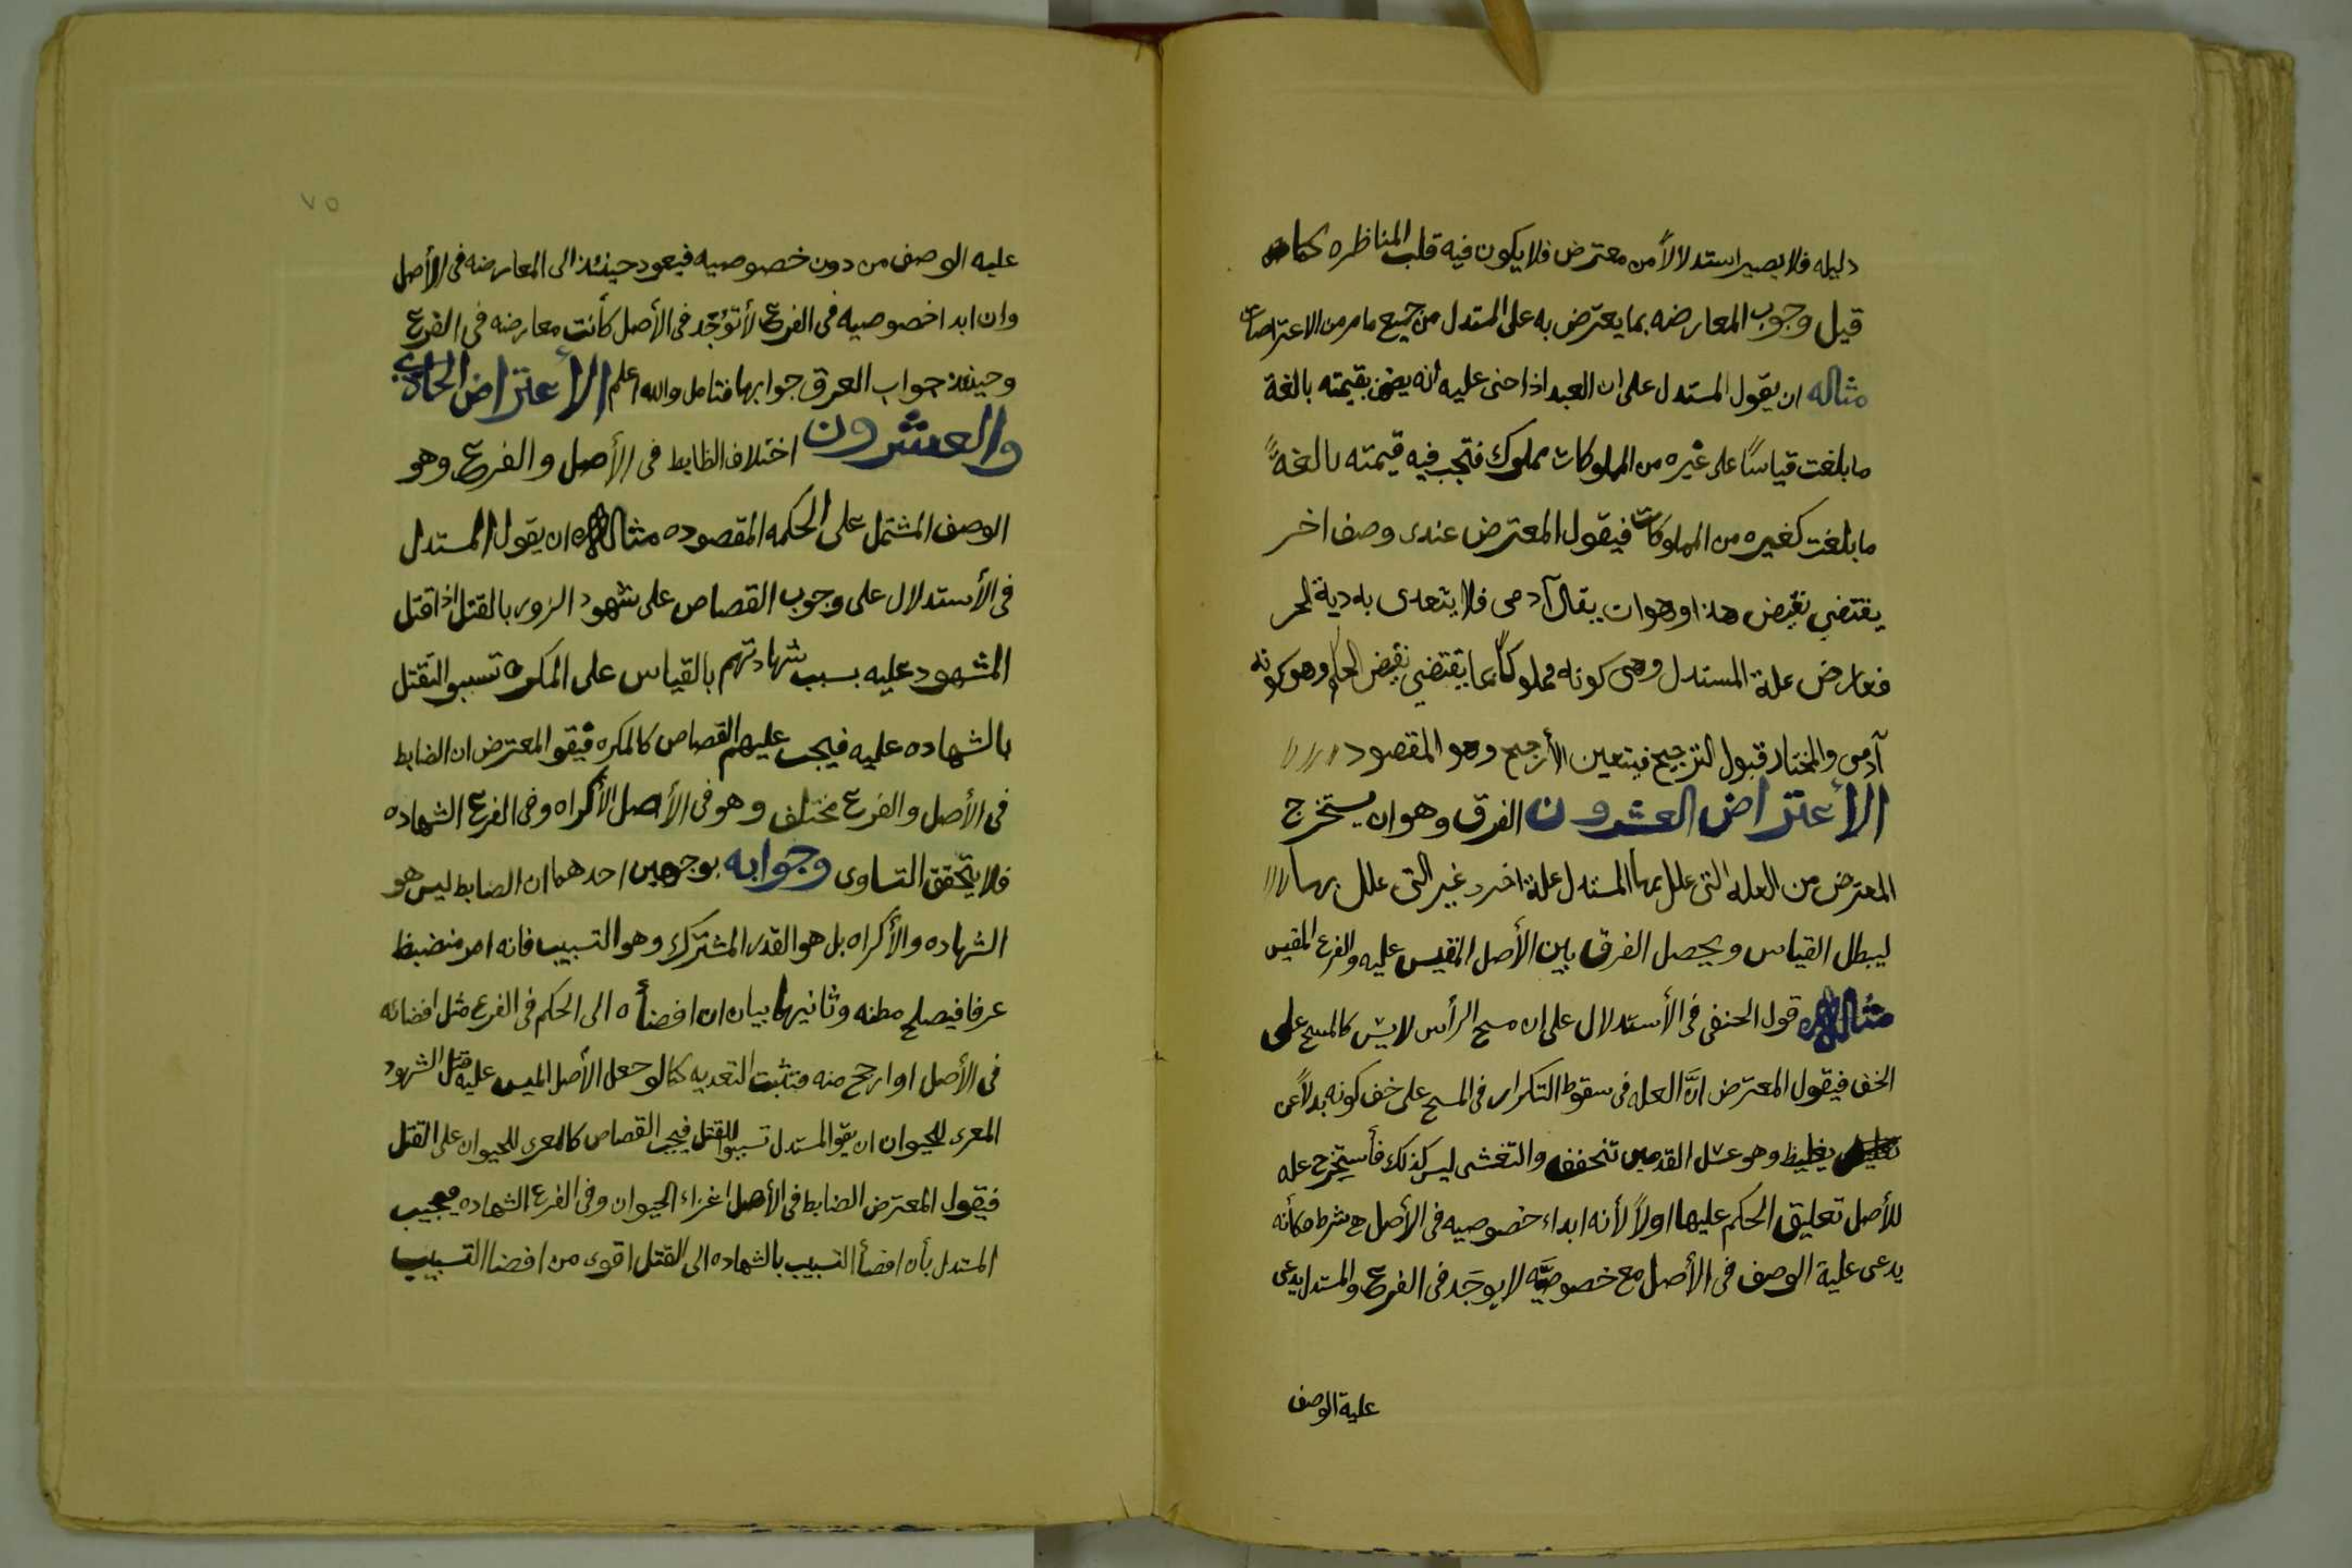 دليله فلا يصير استدلالاً من معترض فلا يكون فيه قلب المناظره كما
قيل وجوب المعارضه بما يعترض به على المستدل من جميع ما مر من الاعتراضات
مثاله ان يقول المستدل على ان العبد اذا جنى عليه انه يضمن بقيمته بالغة
ما بلغت قياسًا على غيره من المملوكات مملوك فتجب فيه قيمته بالغةً
ما بلغت كغيره من المملوكات فيقول المعترض عندى وصف اخر
يقتضي نقيض هذا وهو ان يقال آدمى فلا يتعدى به دية الحر
فعارض علة المستدل وهى كونه مملوكًا بما يقتضي نقيض الحكم وهو كونه
آدمى والمختار قبول الترجيح فيتعين الأرجح وهو المقصود
الأعتراض العشرون الفرق وهو ان يستخرج
المعترض من العله التى علل بها المستدل علة اخرى غير التى علل بها
ليبطل القياس ويحصل الفرق بين الأصل المقيس عليه والفرع المقيس
مثاله قول الحنفى فى الأستدلال على ان مسح الرأس لا يثلث كالمسح على
الخف فيقول المعترض انَّ العله فى سقوط التكرار فى المسح على خف كونه بدلاً عن
تغليظ وهو غسل القدمين تخفف والتغشى ليس كذلك فأستخرج عله
للأصل تعليق الحكم عليها اولاً لأنه ابداء خصوصيه فى الأصل هى شرط فكأنه
يدعى علية الوصف فى الأصل مع خصوصيَّه لا يوجَد فى الفرع والمستدل يدعى
علية الوصف
٧٥
عليه الوصف من دون خصوصيه فيعود حينئذ الى المعارضه فى الأصل
وان ابدا خصوصيه فى الفرع لأتؤجَد فى الأصل كأنت معارضه فى الفرع
وحينئذ جواب الفرق جوابها فتامل والله اعلم الأعتراض الحادي
والعشرون اختلاف الظابط فى الأصل والفرع وهو
الوصف المشتمل على الحكمه المقصوده مثاله ان يقول المستدل
فى الأستدلال على وجوب القصاص على شهود الزور بالقتل اذا قتل
المشهود عليه بسبب شهادتهم بالقياس على المكره تسببو القتل
بالشهاده عليه فيجب عليهم القصاص كالمكره فيقو المعترض ان الضابط
فى الأصل والفرع مختلف وهو فى الأصل الأكراه وفى الفرع الشهاده
فلا يتحقق التساوى وجوابه بوجهين احدهما ان الضابط ليس هو
الشهاده والأكراه بل هو القدر المشترك وهو التسبيب فانه امر منضبظ
عرفا فيصلح مظنه وثانيهما بيان ان افضأه الى الحكم فى الفرع مثل افضائه
فى الأصل او ارجح منه فتثبت التعديه كما لو جعل الأصل المقيس عليه قتل الشهود
المغرى للحيوان ان يقو المستدل تسببوا للقتل فيجب القصاص كالمغرى للحيوان على القتل
فيقول المعترض الضابط فى الأصل اغراء الحيوان وفى الفرع الشهاده فيجيب
المستدل بأن افضأ التسبيب بالشهاده الى القتل اقوى من افضا التسبيب